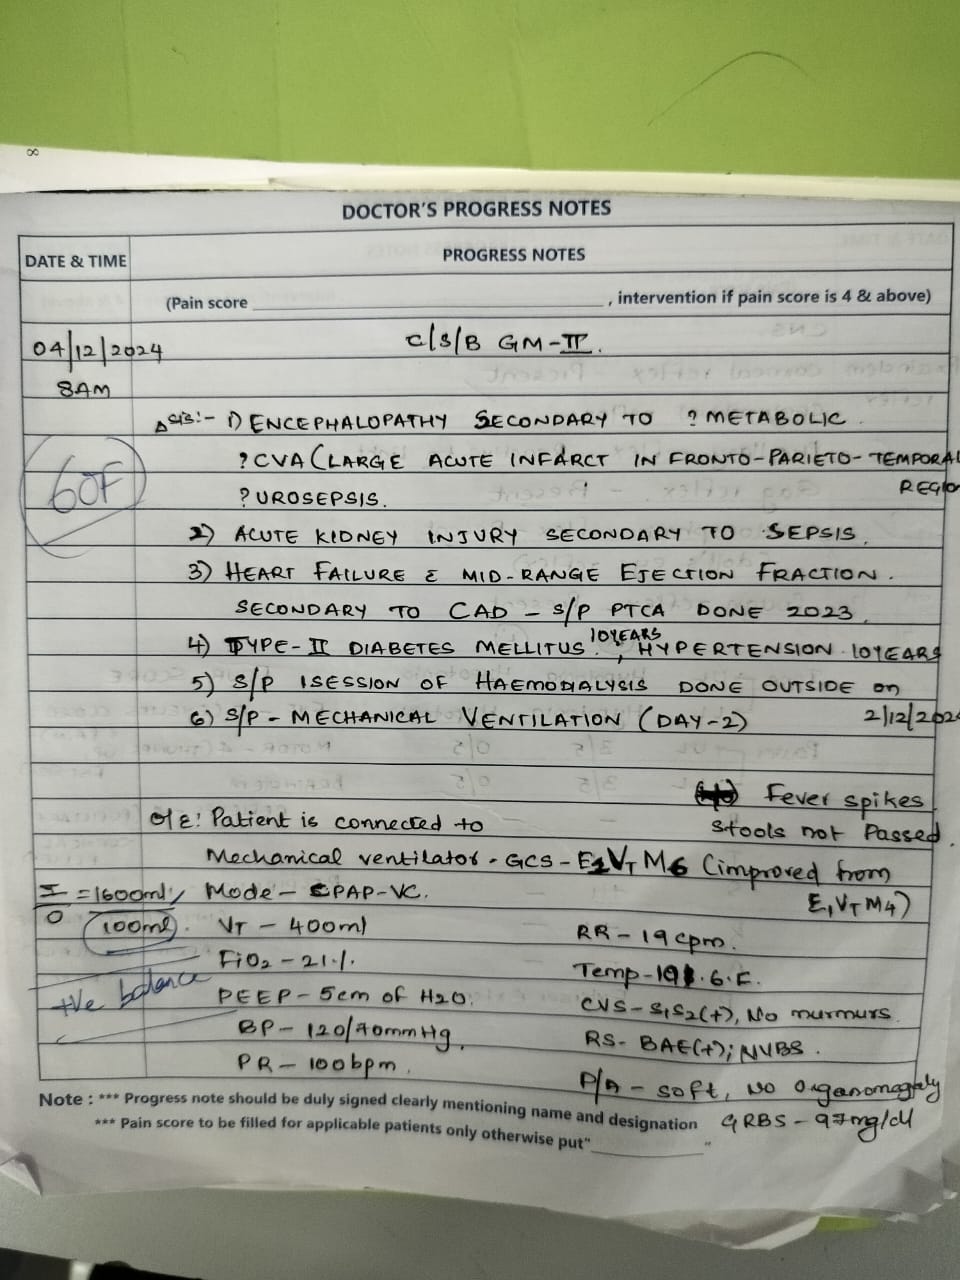 ∞
DOCTOR'S PROGRESS NOTES
DATE & TIME
PROGRESS NOTES
(Pain score ____________, intervention if pain score is 4 & above)
04/12/2024
8AM
C/S/B GM-II.
60F
Δsis:- 1) ENCEPHALOPATHY SECONDARY TO ? METABOLIC
? CVA (LARGE ACUTE INFARCT IN FRONTO-PARIETO-TEMPORAL REGION
? UROSEPSIS.
2) ACUTE KIDNEY INJURY SECONDARY TO SEPSIS.
3) HEART FAILURE c̄ MID-RANGE EJECTION FRACTION.
SECONDARY TO CAD - S/P PTCA DONE 2023.
4) TYPE-II DIABETES MELLITUS. 10YEARS, HYPERTENSION. 10YEARS
5) S/P 1SESSION OF HAEMODIALYSIS DONE OUTSIDE on 2/12/202
6) S/P - MECHANICAL VENTILATION (DAY-2)
Fever spikes
Stools not Passed.
O/E: Patient is connected to
Mechanical ventilator - GCS - VT M6 (improved from
E1VTM4)
I/O = 1600ml/
100ml.
+ve balance
Mode - -VC.
VT - 400ml
FiO2 - 21%.
PEEP - 5cm of H2O.
BP - mmHg.
PR - 100bpm.
RR - 19 cpm.
Temp - .6.F.
CVS - S1S2(+), No murmurs.
RS - BAE(+); NVBS.
P/A - soft, no organomegaly
GRBS - 97mg/dl
Note : *** Progress note should be duly signed clearly mentioning name and designation
*** Pain score to be filled for applicable patients only otherwise put"____________"